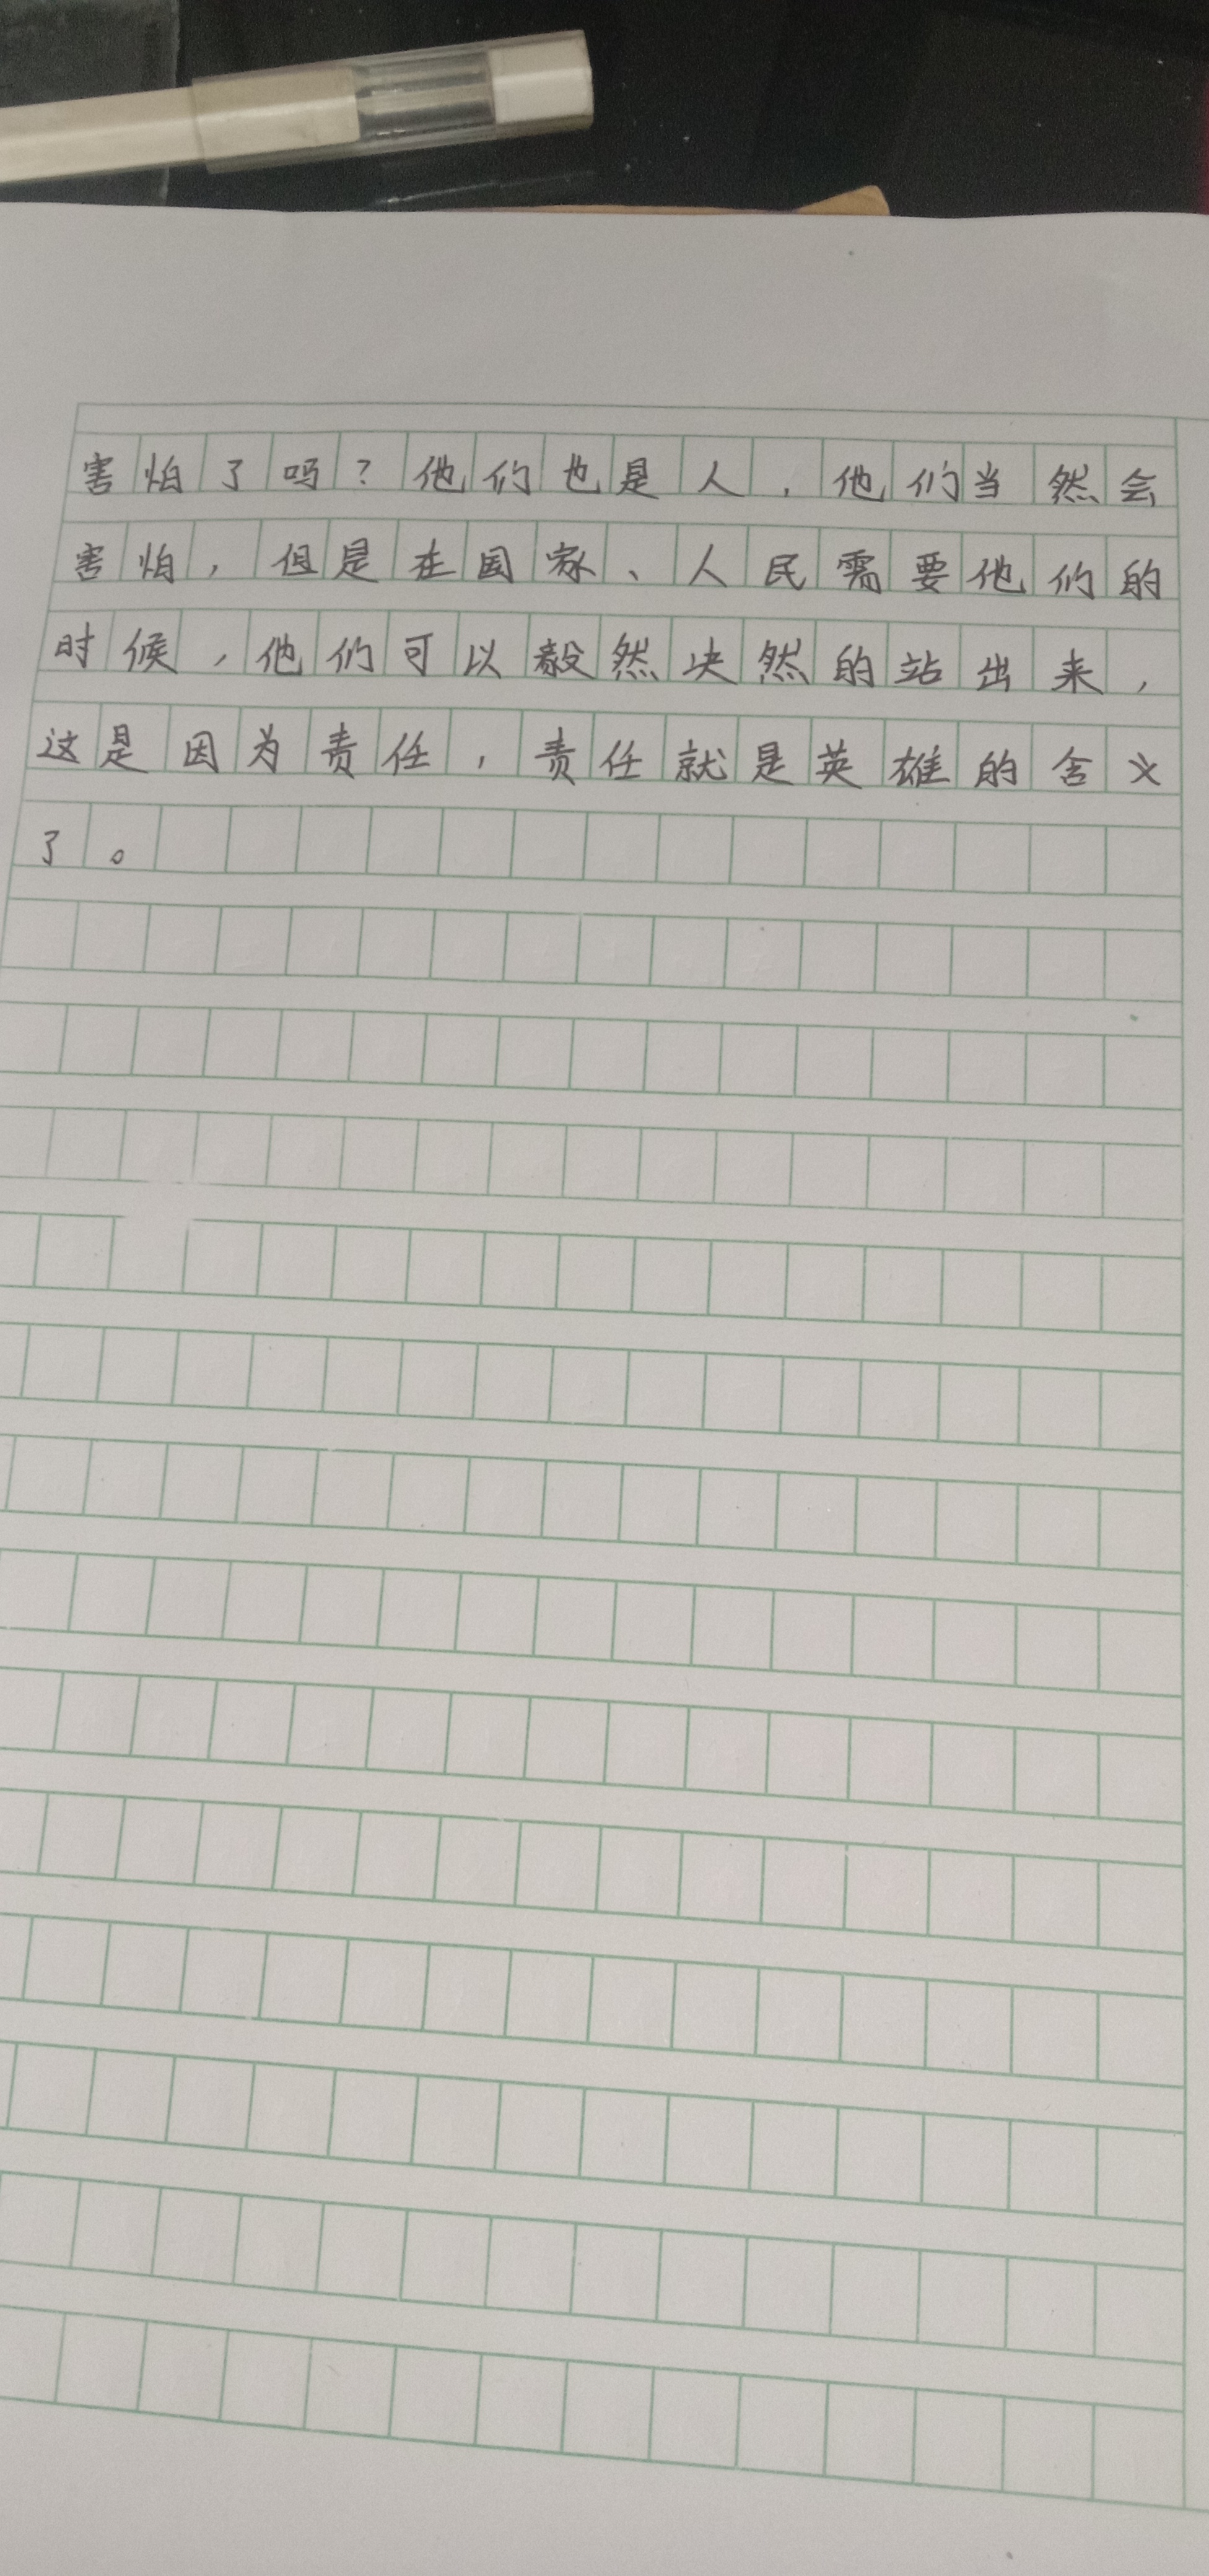 害怕了吗?他们也是人,他们当然会
害怕,但是在国家、人民需要他们的
时候,他们可以毅然决然的站出来,
这是因为责任,责任就是英雄的含义
了。